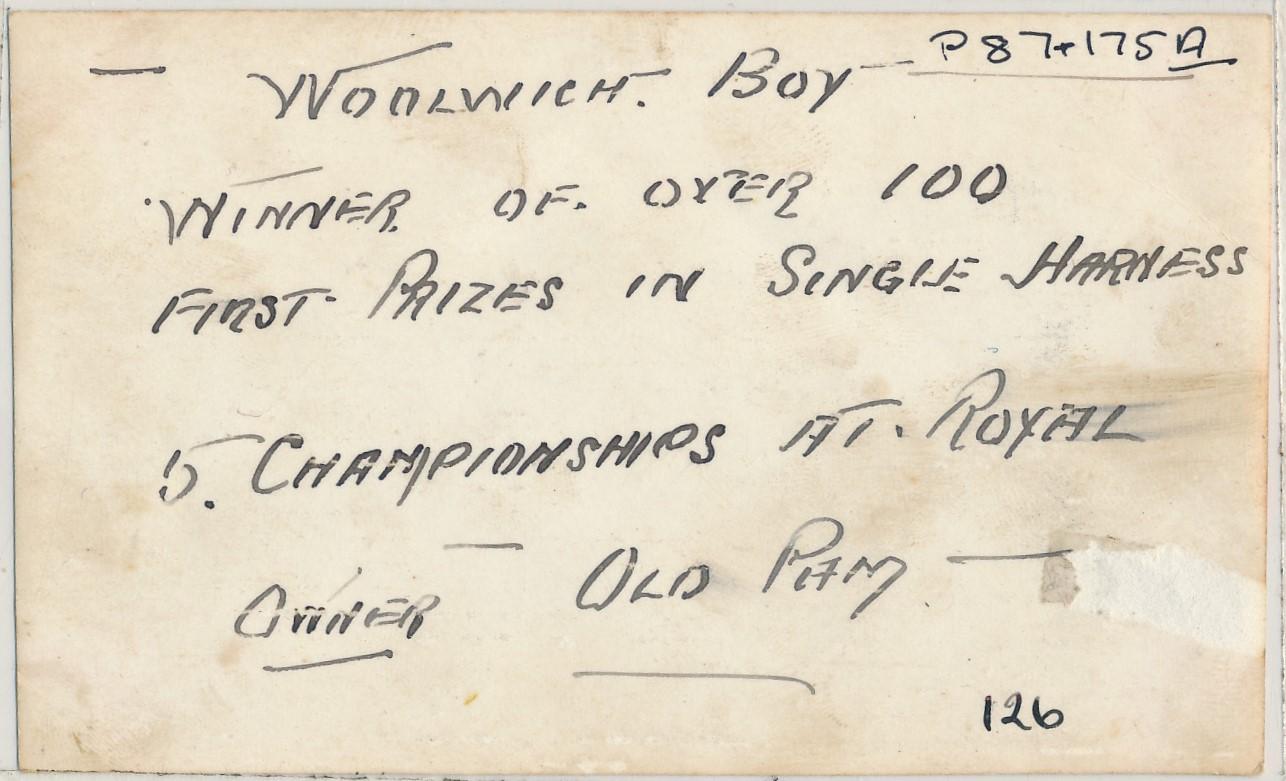 P87+175A
— WOOLWICH. BOY —
WINNER OF. OVER 100
FIRST PRIZES IN SINGLE HARNESS
5. CHAMPIONSHIPS AT. ROYAL
OWNER — OLD PAM —
126